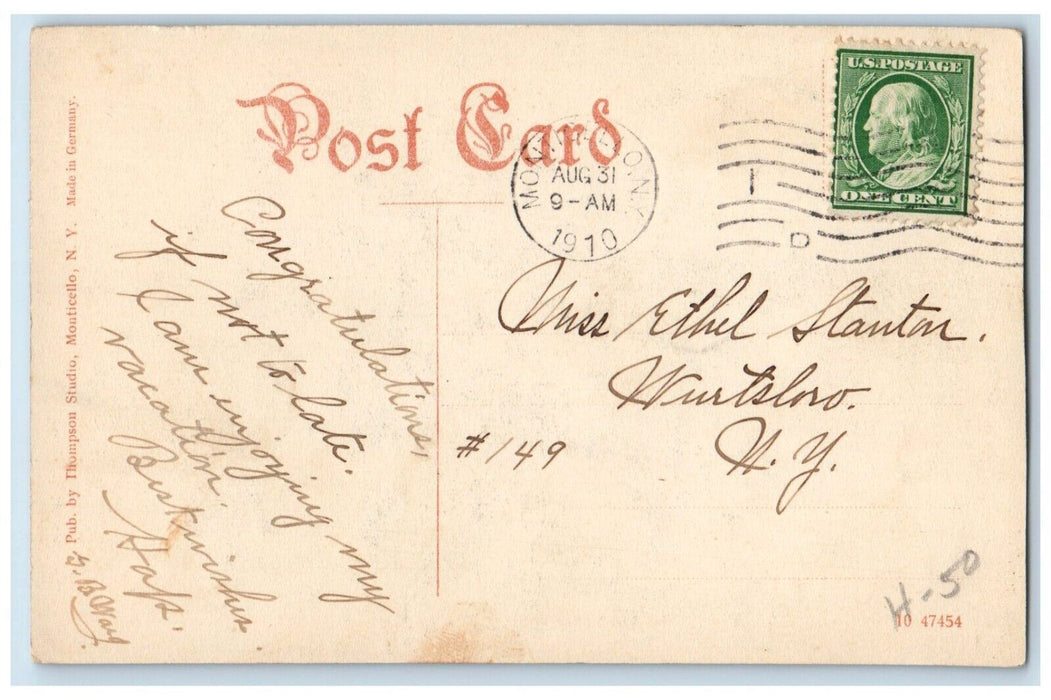 Post Card
U.S. POSTAGE
ONE CENT
AUG 31
9-AM
1910
D
Congratulations,
if not to late.
I am enjoying my
vacation.
Best wishes.
Miss Ethel Stanton.
Wurtsboro.
N. Y.
#149
Pub. by Thompson Studio, Monticello, N. Y. Made in Germany.
H-50
10 47454